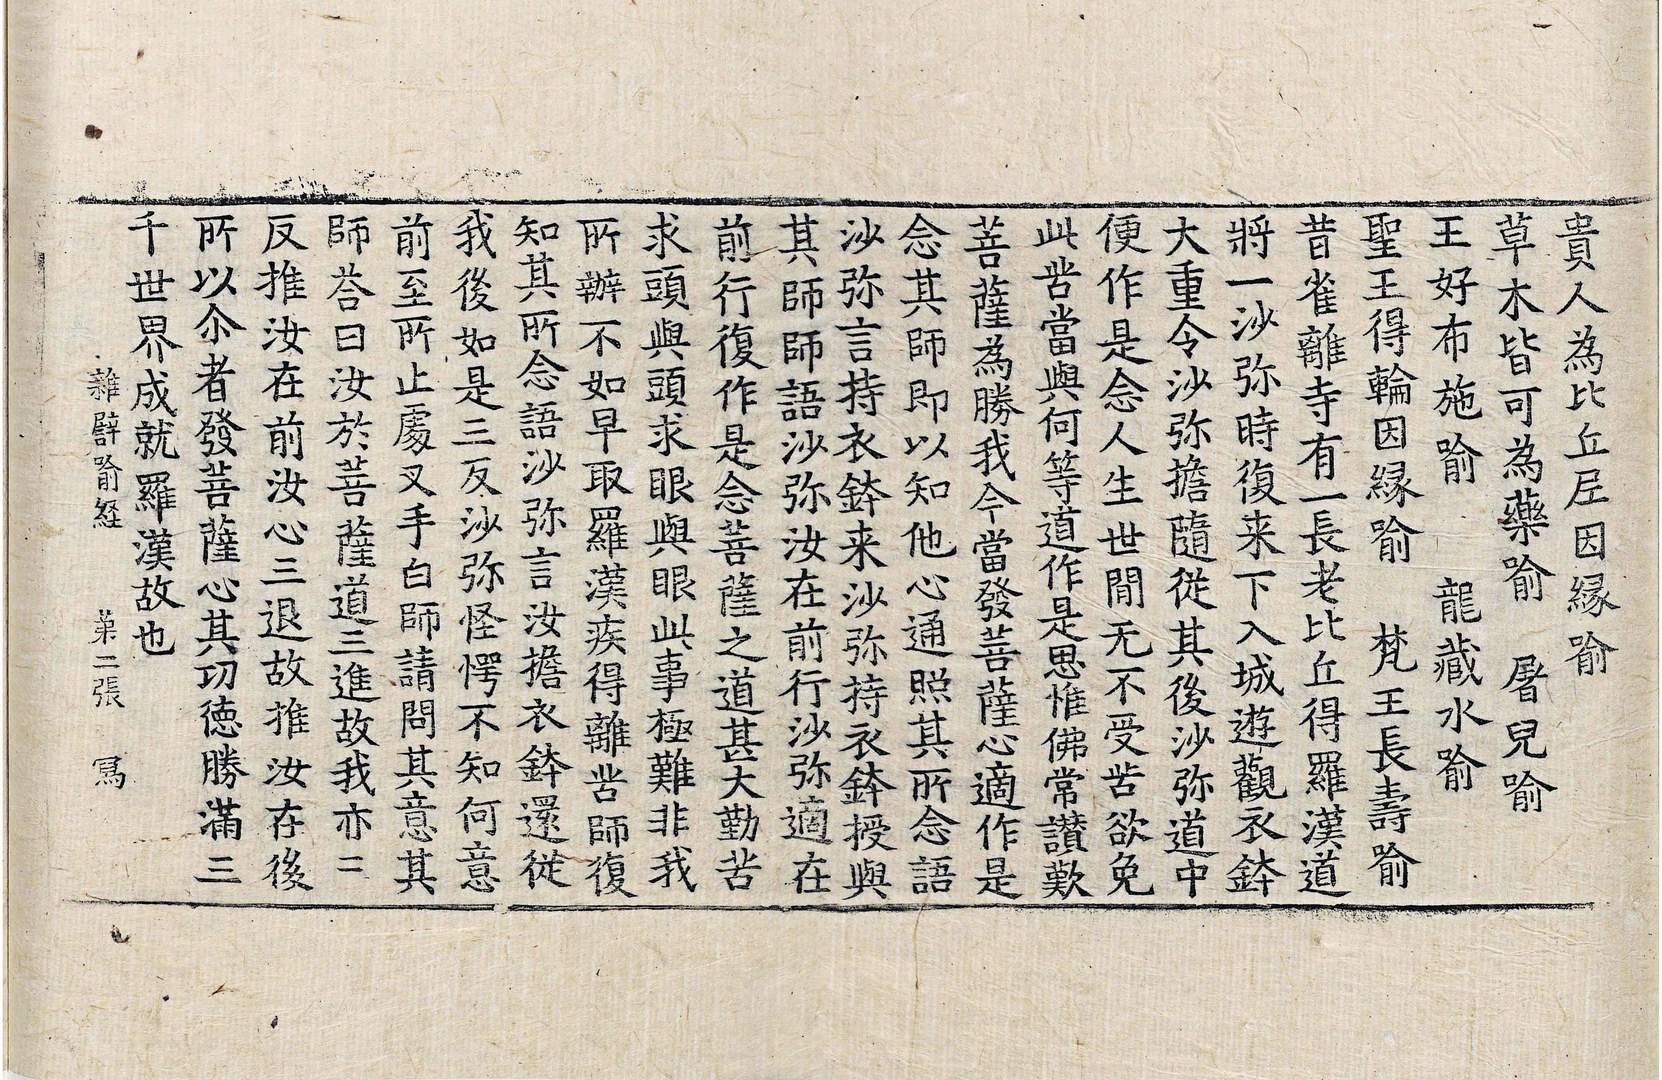 貴人為比丘尼因縁喻
草木皆可為藥喻　屠兒喻
王好布施喻　龍藏水喻
聖王得輪因縁喻　梵王長壽喻
昔雀離寺有一長老比丘得羅漢道
將一沙弥時復来下入城遊觀衣鉢
大重令沙弥擔隨從其後沙弥道中
便作是念人生世間无不受苦欲免
此苦當與何等道作是思惟佛常讃歎
菩薩為勝我今當發菩薩心適作是
念其師即以知他心通照其所念語
沙弥言持衣鉢来沙弥持衣鉢授與
其師師語沙弥汝在前行沙弥適在
前行復作是念菩薩之道甚大勤苦
求頭與頭求眼與眼此事極難非我
所辦不如早取羅漢疾得離苦師復
知其所念語沙弥言汝擔衣鉢還從
我後如是三反沙弥怪愕不知何意
前至所止處叉手白師請問其意其
師荅曰汝於菩薩道三進故我亦三
反推汝在前汝心三退故推汝在後
所以尒者發菩薩心其功徳勝滿三
千世界成就羅漢故也
雜譬喻経　苐二張　冩